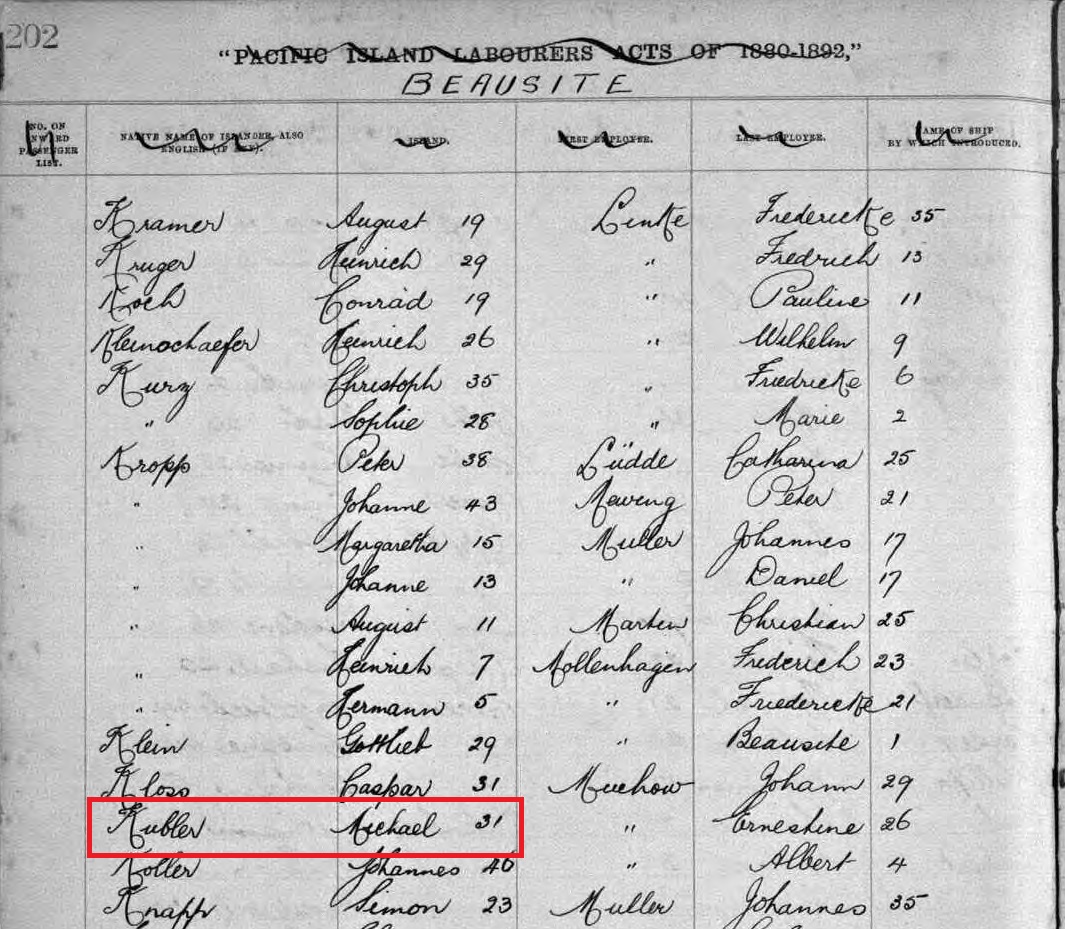 202
"PACIFIC ISLAND LABOURERS ACTS OF 1880-1892,"
BEAUSITE
NO. ON INWARD PASSENGER LIST. NATIVE NAME OF ISLANDER, ALSO ENGLISH (IF ANY). ISLAND. FIRST EMPLOYER. LAST EMPLOYER. NAME OF SHIP BY WHICH INTRODUCED.
Kramer August 19 Linke Fredericke 35
Kruger Heinrich 29 " Fredrich 13
Koch Conrad 19 " Pauline 11
Kleinochaefer Heinrich 26 " Wilhelm 9
Kurz Christoph 35 " Friedricke 6
" Sophie 28 " Marie 2
Kropp Peter 38 Lüdde Catharina 25
" Johanne 43 Maweng Peter 21
" Margaretha 15 Muller Johannes 17
" Johanne 13 " Daniel 17
" August 11 Marten Christian 25
" Heinrich 7 Mollenhagen Frederich 23
" Hermann 5 " Friedericke 21
Klein Gottlieb 29 " Beausite 1
Kloss Caspar 31 Muchow Johann 29
Kubler Michael 31 " Ernestine 26
Koller Johannes 40 " Albert 4
Knapp Simon 23 Muller Johannes 35